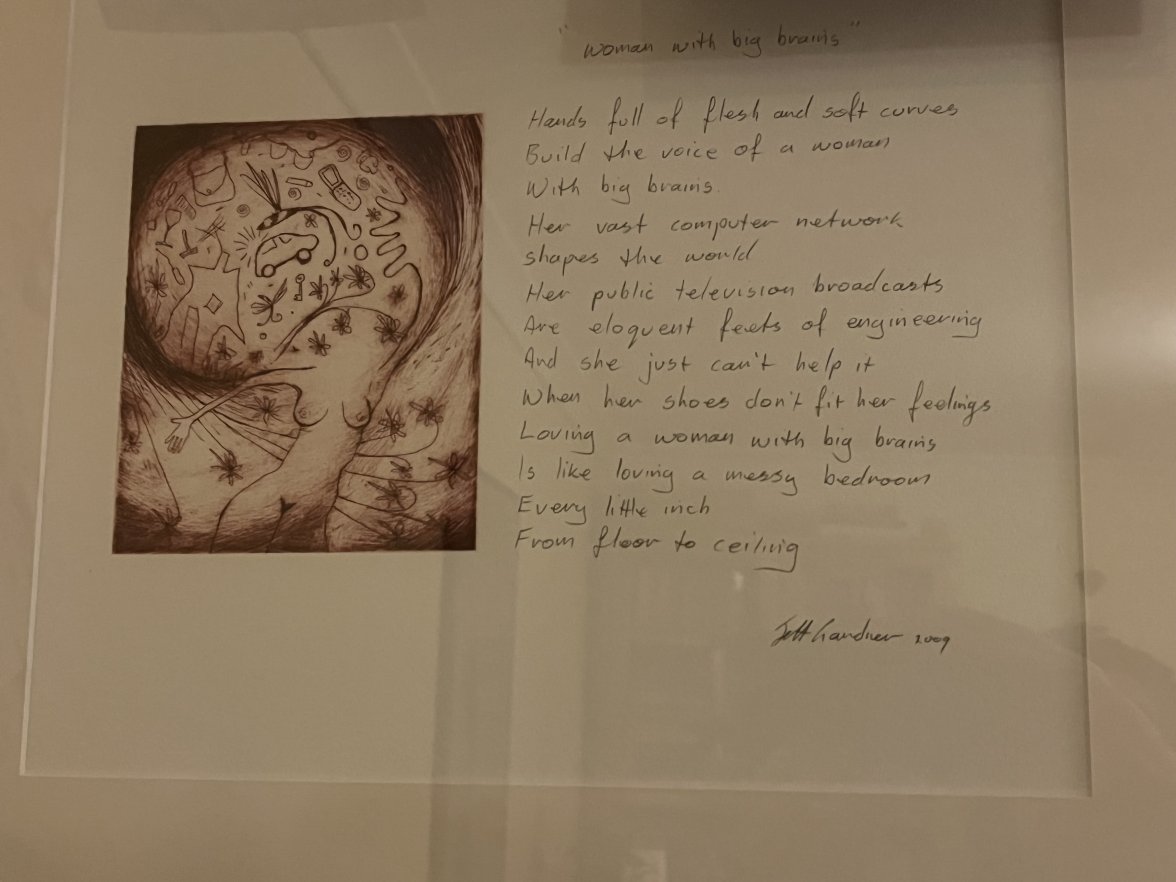 "woman with big brains"
Hands full of flesh and soft curves
Build the voice of a woman
With big brains.
Her vast computer network
shapes the world
Her public television broadcasts
Are eloquent feets of engineering
And she just can't help it
When her shoes don't fit her feelings
Loving a woman with big brains
Is like loving a messy bedroom
Every little inch
From floor to ceiling
Jeff Gardner 2009